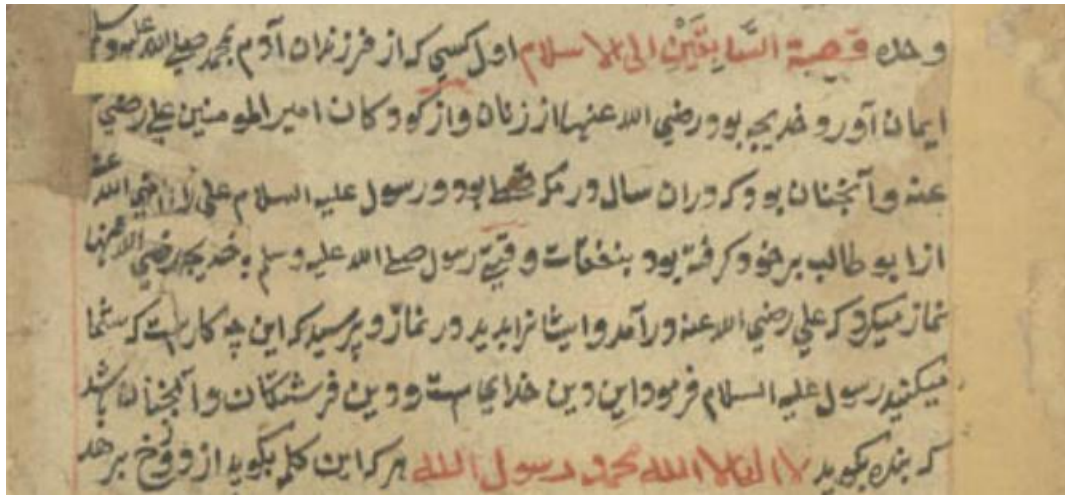 وحده قصة السَّابِقَينِ الی الاسلام اول کسی که از فرزندان آدم بمحمد صلے الله علیه وسلم
ایمان آورد خدیجه بود رضي الله عنها از زنان واز کودکان امیر المومنین علي رضي
عنه وآنچنان بود که دران سال در مکه قحط بود ورسول علیه السلام علي را رضي الله عنه
از ابو طالب برخود گرفته بود بنفقات وقتی رسول صلے الله علیه وسلم با خدیجه رضي الله عنها
نماز میکرد که علي رضي الله عنه درآمد وایشانرا بدید در نماز وپرسید که این چه کارست که شما
میکنید رسول علیه السلام فرمود این دین خدای است ودین فرشتکان وآنچنان باشد
که بنده بگوید لا اله الا الله محمد رسول الله هر که این کلمه بگوید از دوزخ برهد